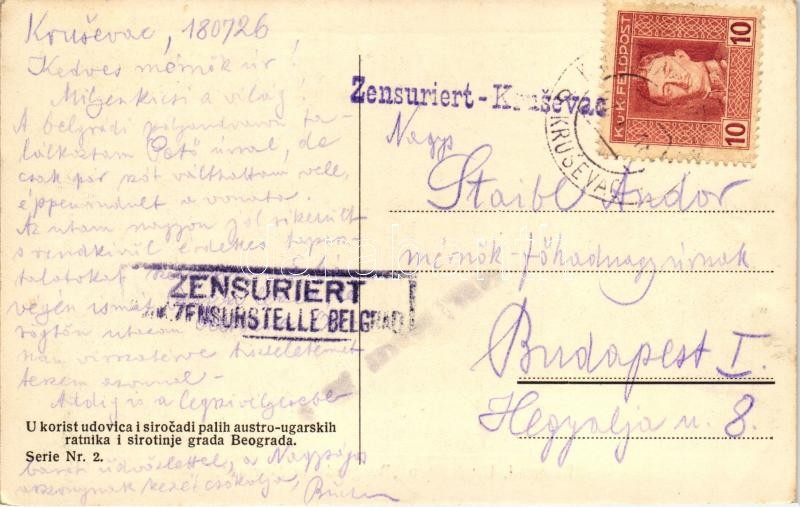 Kruševac, 180726
Kedves mérnök úr!
Milyen kicsi a világ!
A belgrádi pályaudvaron ta-
lálkoztam Pető úrral, de
csak pár szót válthattam vele,
éppen indult a vonata.
Az utam nagyon jól sikerült
s rendkívül érdekes tapasz-
talatokat
végén ismét
rögtön utazom
visszatérve tiszteletemet
teszem azonnal –
Addig is a legszívélyesebb
baráti üdvözlettel, a Nagyságos
asszonynak kezét csókolja,
U korist udovica i siročadi palih austro-ugarskih
ratnika i sirotinje grada Beograda.
Serie Nr. 2.
ZENSURIERT
ZENSURSTELLE BELGRAD
Zensuriert - Kruševac
K.u.K. FELDPOST
10
10
KRUSEVAC
Nagys
Staibl Andor
mérnök-főhadnagy úrnak
Budapest I.
Hegyalja u. 8.